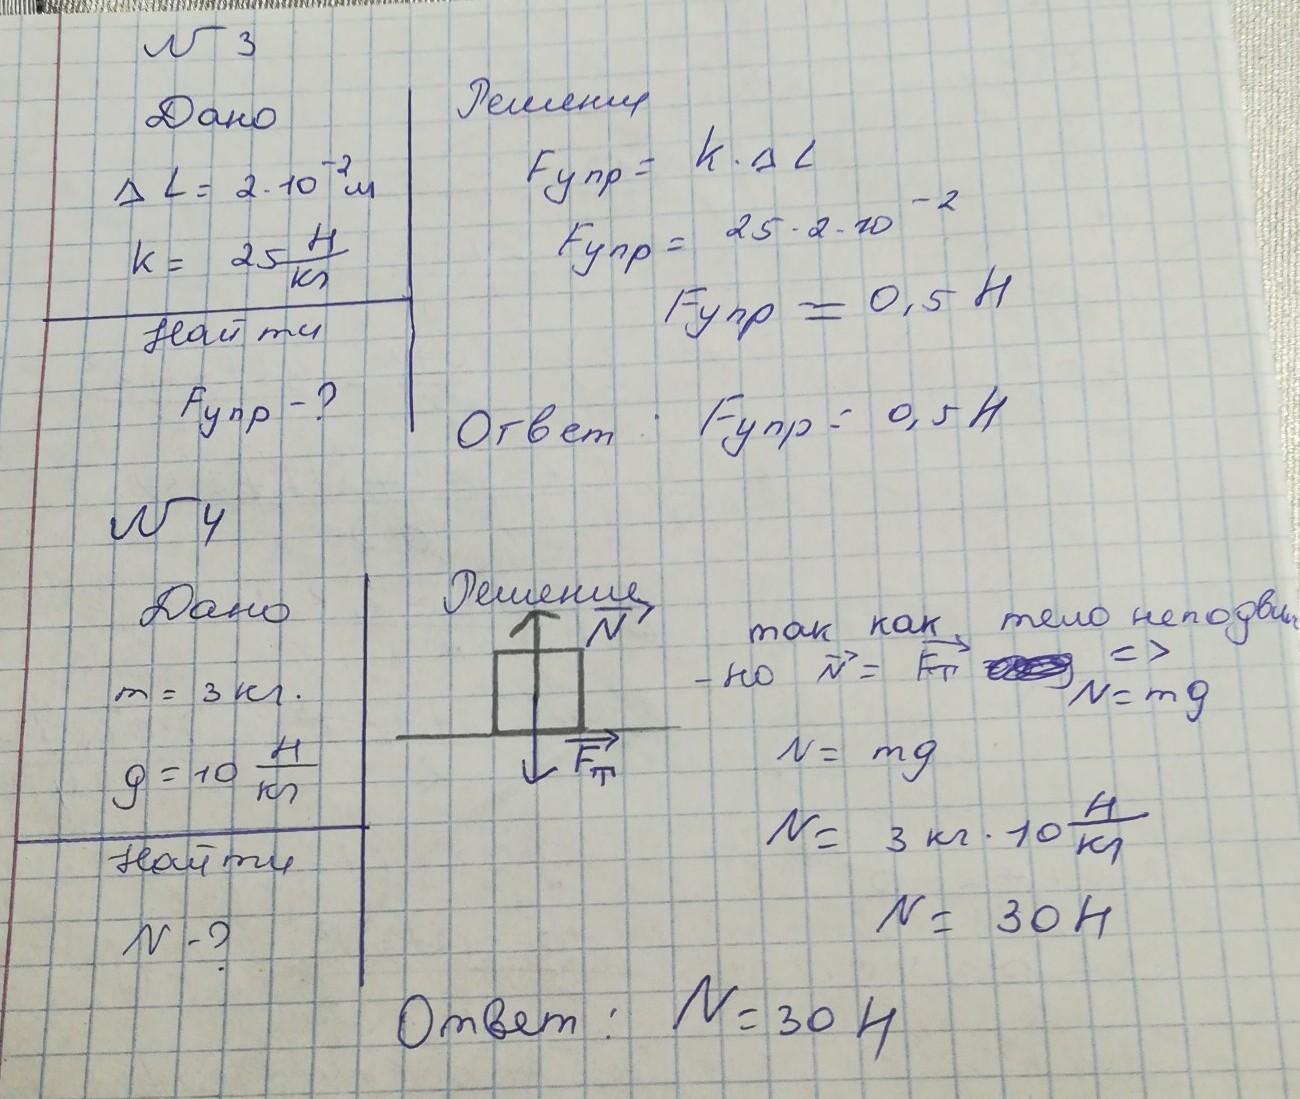 N 3
Дано
Δ L = 2·10⁻² м
k = 25 Н/кг
Найти
Fупр - ?
Решение
Fупр = k · Δ L
Fупр = 25 · 2 · 10⁻²
Fупр = 0,5 Н
Ответ : Fупр = 0,5 Н
N 4
Дано
m = 3 кг.
g = 10 Н/кг
Найти
N - ?
Решение
N⃗
F⃗т
так как, тело неподвиж
-но N⃗ = F⃗т =>
N = mg
N = mg
N = 3 кг · 10 Н/кг
N = 30 Н
Ответ : N = 30 Н